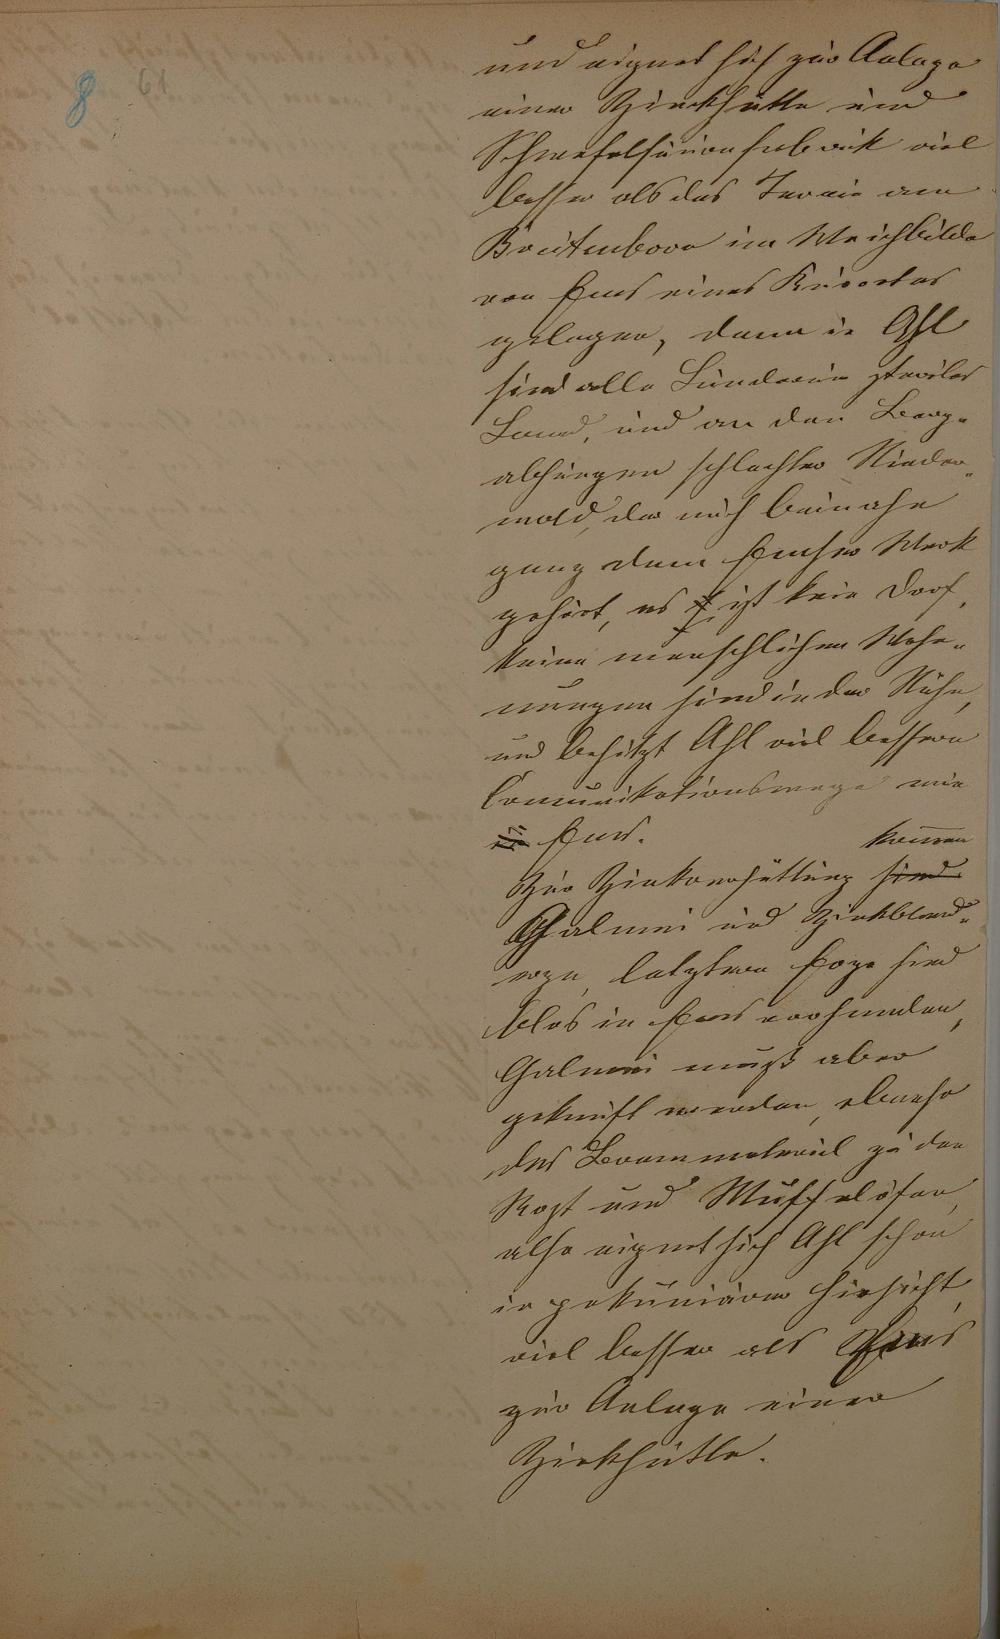 8 61
und eignet sich zur Anlage
einer Zinkhütte und
Schwefelsäurenfabrik viel
besser als das Terrain am
im Weichbilde
von Ems eines Kurortes
gelegen, denn in Ahl
sind alle Ländereien steriles
Land, und an den Berg-
abhängen schlechter Nieder-
wald, der auch beinahe
ganz dem Emser Werk
gehört, es ist kein Dorf,
keine menschlichen Woh-
nungen sind in der Nähe,
und besitzt Ahl viel bessere
Comunikationswege wie
in Ems.
kommen
Zur Zinkverhüttung sind
Galmei und Zinkblend-
erze, letztere Erze sind
blos in Ems vorhanden,
Galmei muß aber
gekauft werden, ebenso
das Brennmaterial zu den
Rost und Muffelöfen,
also eignet sich Ahl schon
in pekuniärer Hinsicht,
viel besser als Ems
zur Anlage einer
Zinkhütte.